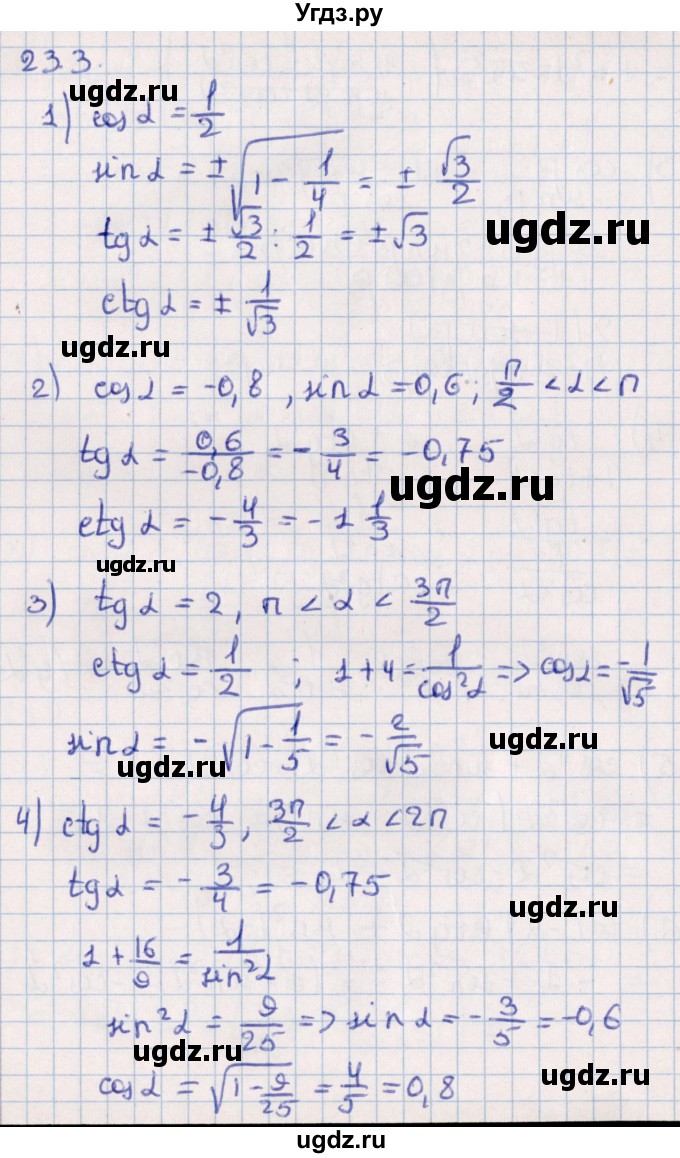 Угдз.ру
23.3.
ugdz.ru
1) cos α = 1/2
sin α = ± √(1 - 1/4) = ± √3/2
ugdz.ru ugdz.ru
tg α = ± √3/2 : 1/2 = ± √3
ctg α = ± 1/√3
ugdz.ru
2) cos α = -0,8 , sin α = 0,6 ; π/2 < α < π
tg α = 0,6/-0,8 = - 3/4 = -0,75
ugdz.ru
ctg α = - 4/3 = -1 1/3
ugdz.ru
3) tg α = 2, π < α < 3π/2
ctg α = 1/2 ; 1 + 4 = 1/cos²α => cos α = - 1/√5
sin α = - √(1 - 1/5) = - 2/√5
ugdz.ru ugdz.ru
4) ctg α = - 4/3, 3π/2 < α < 2π
tg α = - 3/4 = -0,75
ugdz.ru
1 + 16/9 = 1/sin²α
sin²α = 9/25 => sin α = - 3/5 = -0,6
ugdz.ru
cos α = √(1 - 9/25) = 4/5 = 0,8
ugdz.ru
ugdz.ru